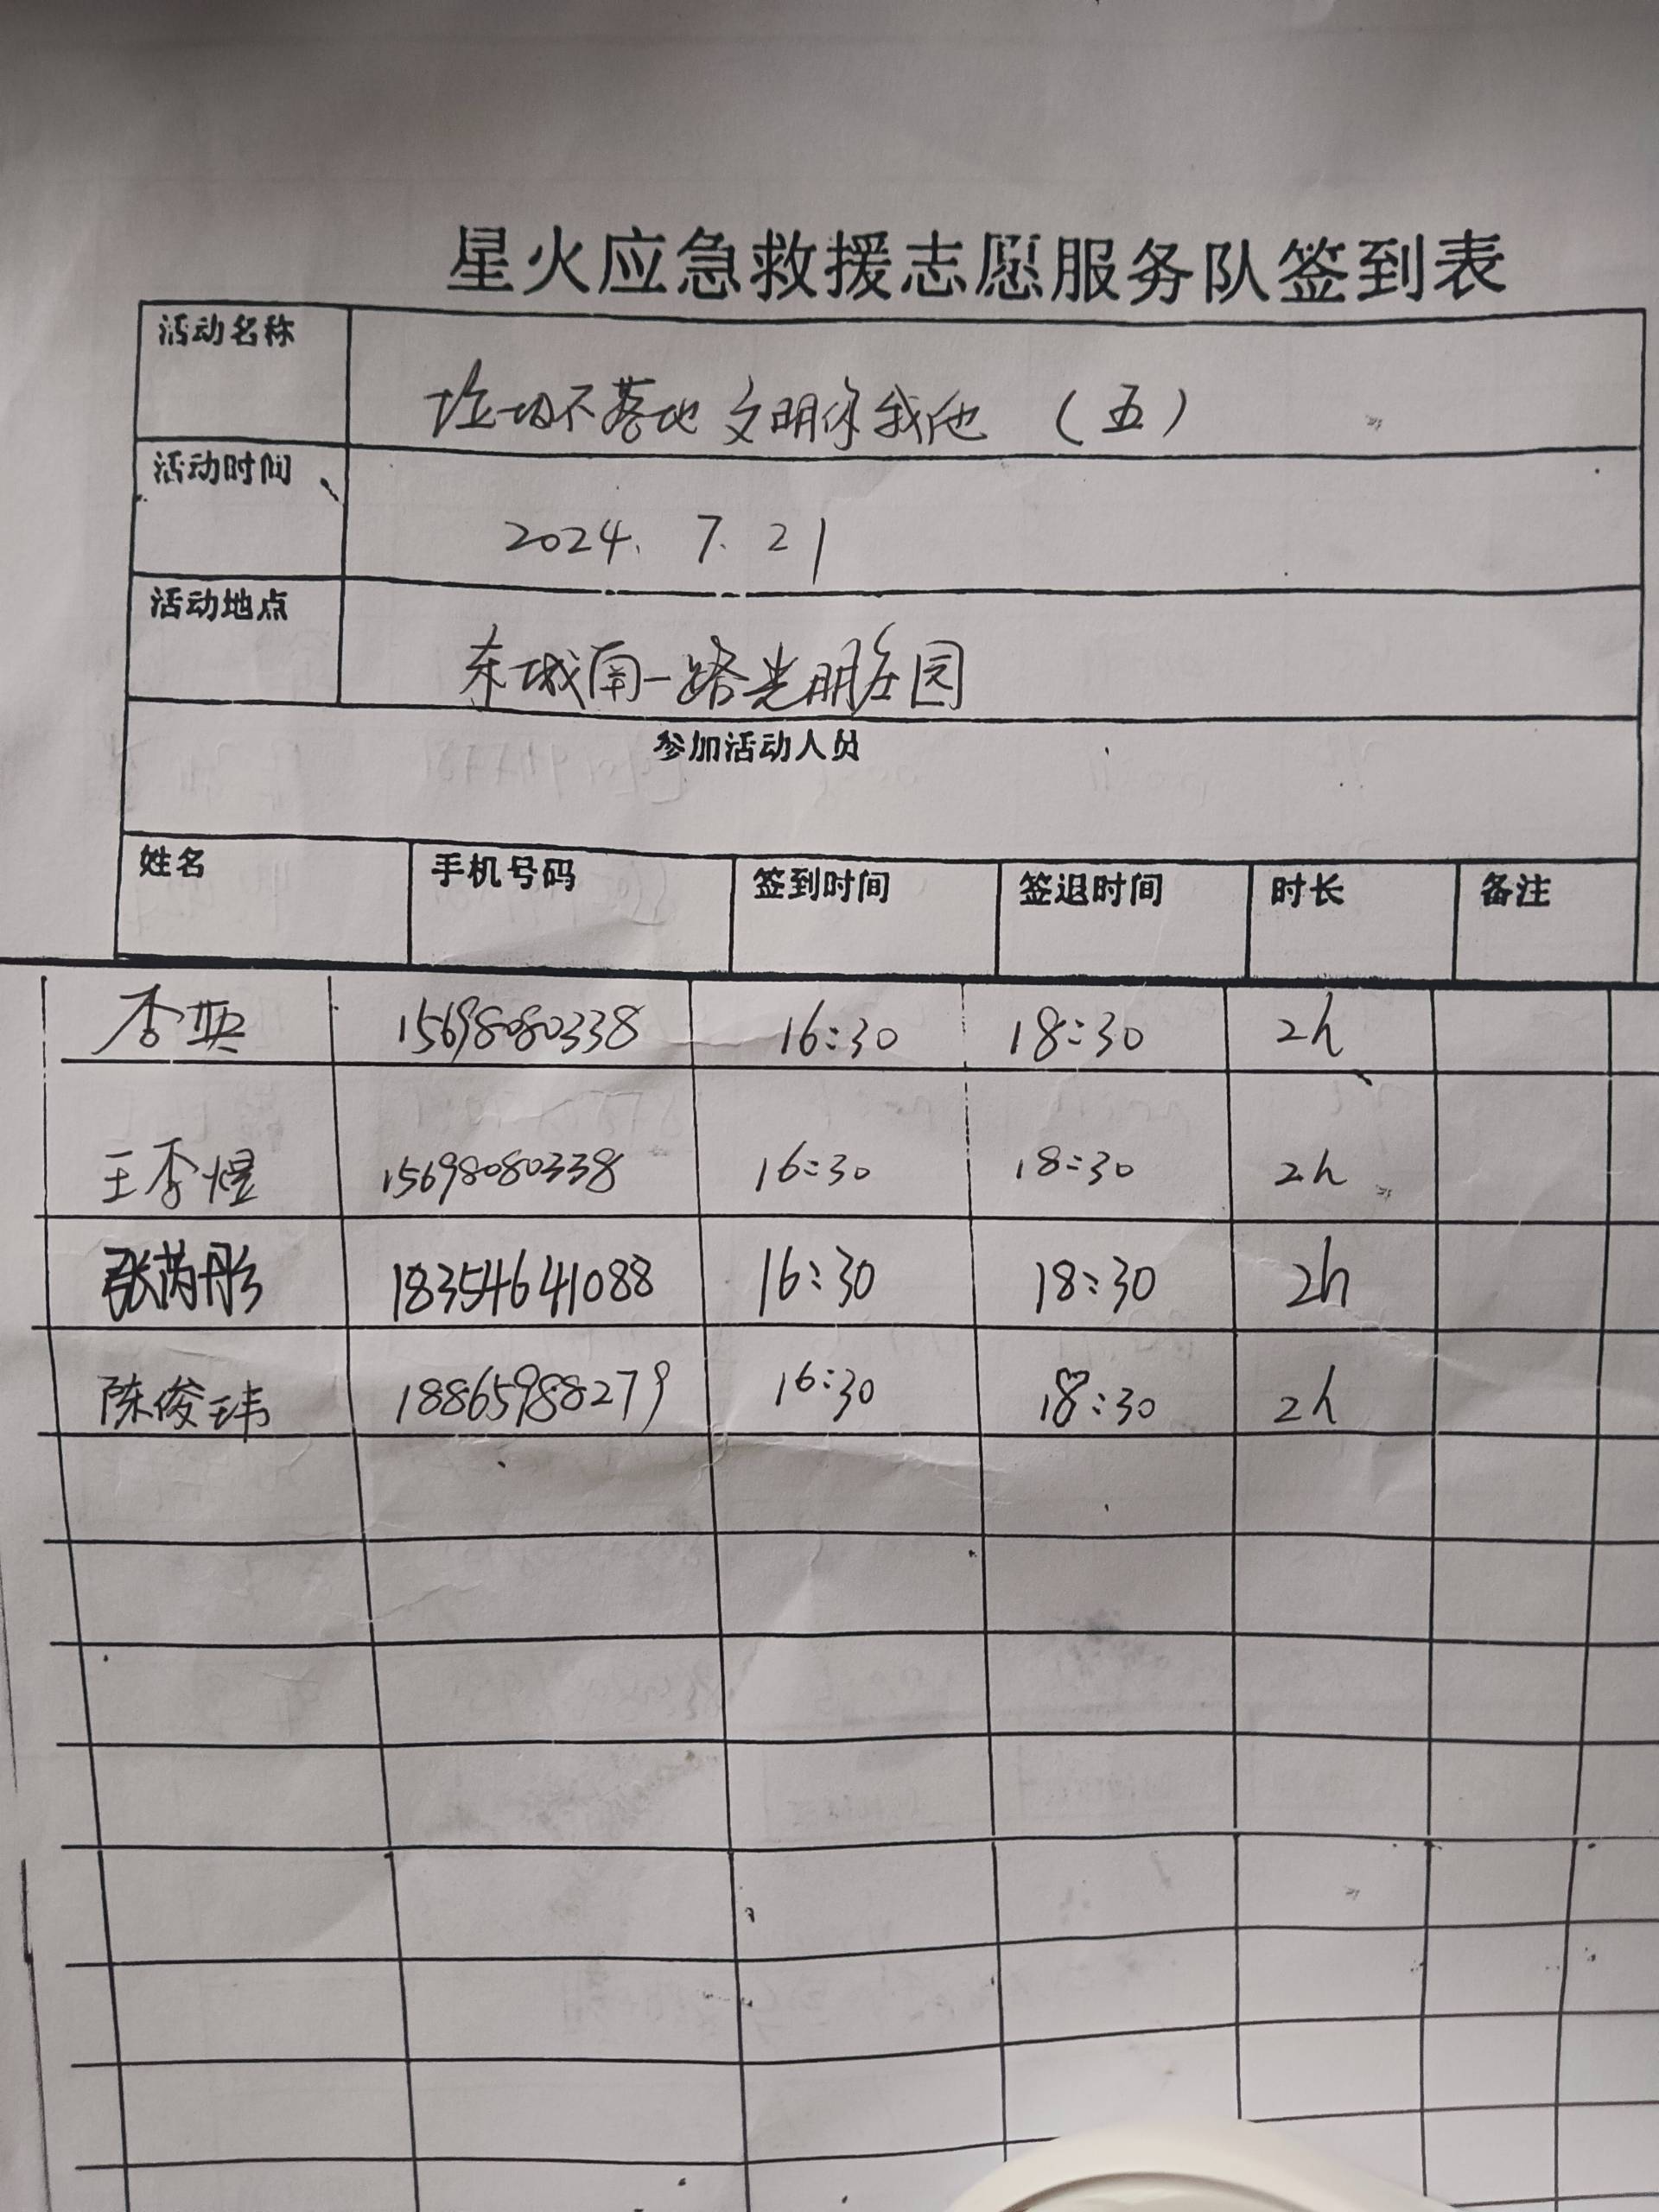 星火应急救援志愿服务队签到表
活动名称 垃圾不落地 文明你我他 (五)
活动时间 2024. 7. 21
活动地点 东城南一路光明庄园
参加活动人员
姓名 手机号码 签到时间 签退时间 时长 备注
李英 15698080338 16:30 18:30 2h
王李煜 15698080338 16:30 18:30 2h
张芮彤 18354641088 16:30 18:30 2h
陈俊玮 18865988279 16:30 18:30 2h